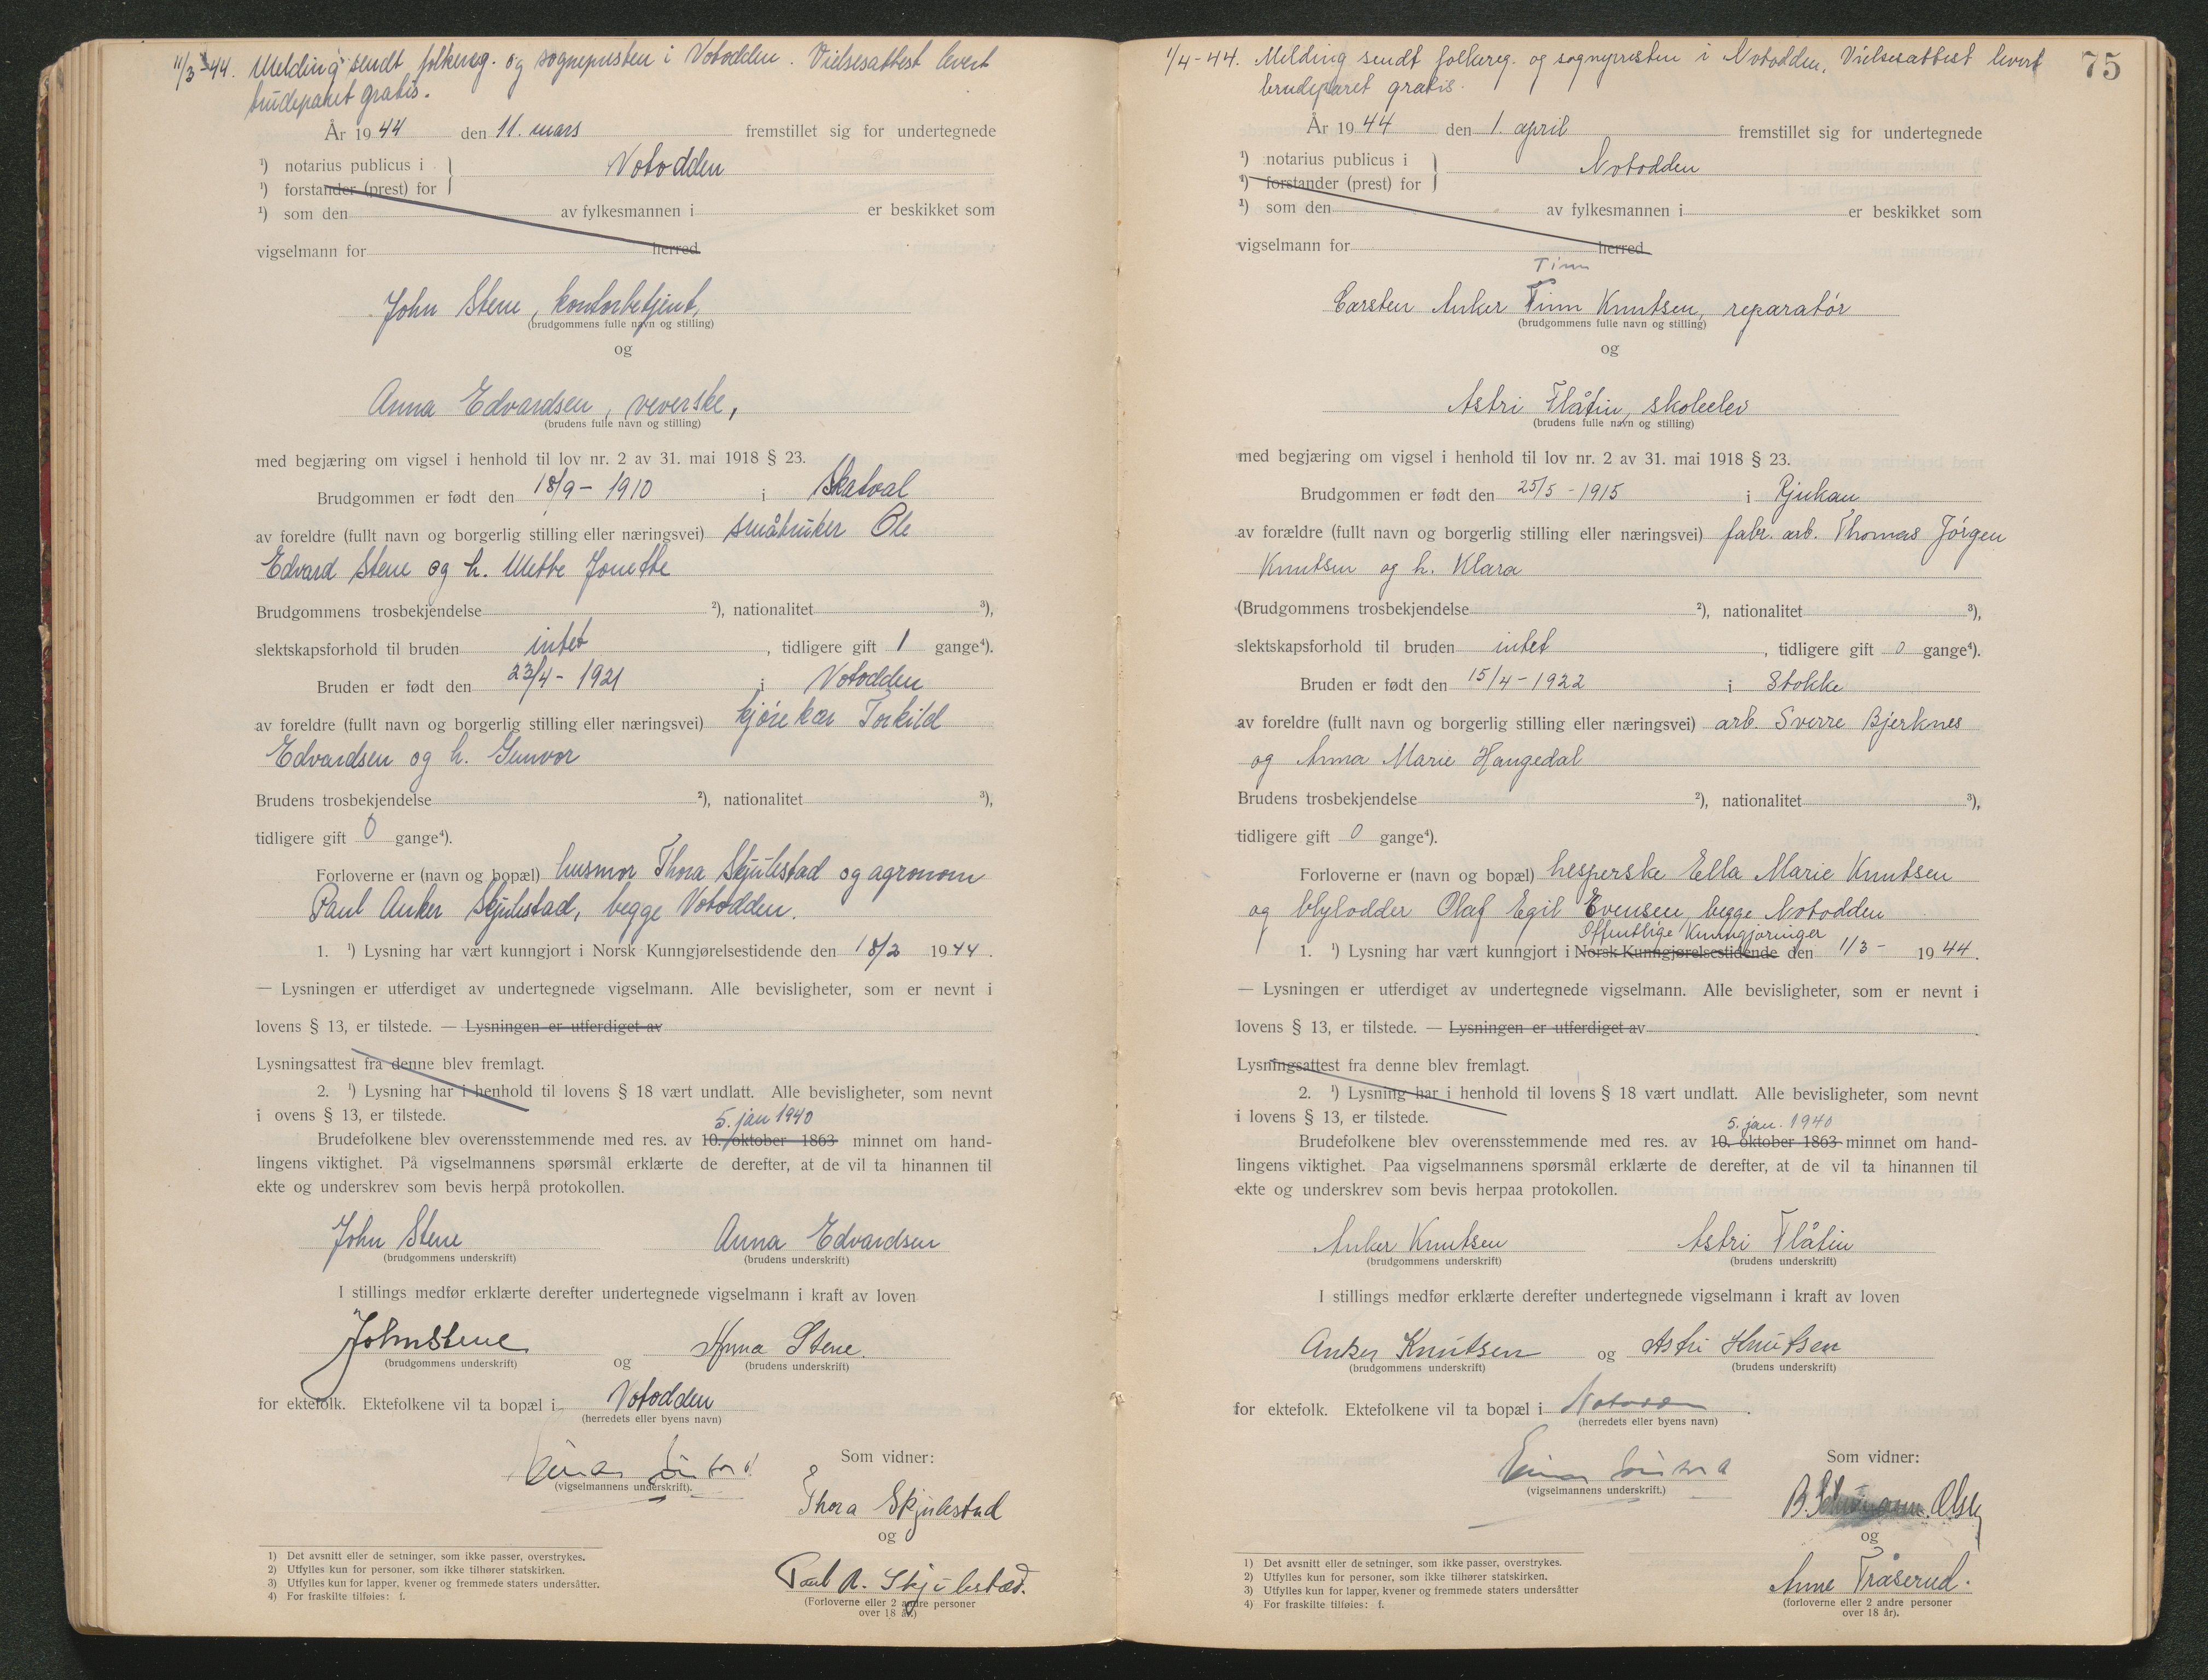 11/3-44. Melding sendt folkereg. og sognepresten i Notodden. Vielsesattest levert
brudeparet gratis.
År 1944 den 11. mars fremstillet sig for undertegnede
¹) notarius publicus i } Notodden
¹) forstander (prest) for
¹) som den av fylkesmannen i er beskikket som
vigselmann for herred
John Stene, kontorbetjent,
(brudgommens fulle navn og stilling)
og
Anna Edvardsen, veverske,
(brudens fulle navn og stilling)
med begjæring om vigsel i henhold til lov nr. 2 av 31. mai 1918 § 23.
Brudgommen er født den 18/9 - 1910 i Skatval
av foreldre (fullt navn og borgerlig stilling eller næringsvei) småbruker Ole
Edvard Stene og h. Mette Jonette
Brudgommens trosbekjendelse ²), nationalitet ³),
slektskapsforhold til bruden intet, tidligere gift 1 gange⁴).
Bruden er født den 23/4 - 1921 i Notodden
av foreldre (fullt navn og borgerlig stilling eller næringsvei) kjørekar Torkild
Edvardsen og h. Gunvor
Brudens trosbekjendelse ²), nationalitet ³),
tidligere gift 0 gange⁴).
Forloverne er (navn og bopæl) husmor Thora Skjulestad og agronom
Paul Anker Skjulestad, begge Notodden.
1. ¹) Lysning har vært kunngjort i Norsk Kunngjørelsestidende den 18/2 1944.
— Lysningen er utferdiget av undertegnede vigselmann. Alle bevisligheter, som er nevnt i
lovens § 13, er tilstede. — Lysningen er utferdiget av
Lysningsattest fra denne blev fremlagt.
2. ¹) Lysning har i henhold til lovens § 18 vært undlatt. Alle bevisligheter, som nevnt
i ovens § 13, er tilstede.
5. jan 1940
Brudefolkene blev overensstemmende med res. av 10. oktober 1863 minnet om hand-
lingens viktighet. På vigselmannens spørsmål erklærte de derefter, at de vil ta hinannen til
ekte og underskrev som bevis herpå protokollen.
John Stene Anna Edvardsen
(brudgommens underskrift) (brudens underskrift)
I stillings medfør erklærte derefter undertegnede vigselmann i kraft av loven
John Stene og Anna Stene.
(brudgommens underskrift) (brudens underskrift)
for ektefolk. Ektefolkene vil ta bopæl i Notodden
(herredets eller byens navn)
Som vidner:
(vigselmannens underskrift).
Thora Skjulestad
og
Paul A. Skjulestad.
(Forloverne eller 2 andre personer
over 18 år.)
1) Det avsnitt eller de setninger, som ikke passer, overstrykes.
2) Utfylles kun for personer, som ikke tilhører statskirken.
3) Utfylles kun for lapper, kvener og fremmede staters undersåtter.
4) For fraskilte tilføies: f.
75
1/4-44. Melding sendt folkereg. og sognepresten i Notodden. Vielsesattest levert
brudeparet gratis.
År 1944 den 1. april fremstillet sig for undertegnede
¹) notarius publicus i } Notodden
¹) forstander (prest) for
¹) som den av fylkesmannen i er beskikket som
vigselmann for herred
Tinn
Carsten Anker Tinn Knutsen, reparatør
(brudgommens fulle navn og stilling)
og
Astri Flåtin, skoleelev
(brudens fulle navn og stilling)
med begjæring om vigsel i henhold til lov nr. 2 av 31. mai 1918 § 23.
Brudgommen er født den 25/5 - 1915 i Rjukan
av forældre (fullt navn og borgerlig stilling eller næringsvei) fabr. arb. Thomas Jörgen
Knutsen og h. Klara
(Brudgommens trosbekjendelse ²), nationalitet ³),
slektskapsforhold til bruden intet, tidligere gift 0 gange⁴).
Bruden er født den 15/4 - 1922 i Stokke
av foreldre (fullt navn og borgerlig stilling eller næringsvei) arb. Sverre Bjerknes
og Anna Marie Haugedal
Brudens trosbekjendelse ²), nationalitet ³),
tidligere gift 0 gange⁴).
Forloverne er (navn og bopæl) hesperske Ella Marie Knutsen
og blylodder Olaf Egil Evensen, begge Notodden
Offentlige Kunngjøringer
1. ¹) Lysning har vært kunngjort i Norsk Kunngjørelsestidende den 1/3 - 1944.
— Lysningen er utferdiget av undertegnede vigselmann. Alle bevisligheter, som er nevnt i
lovens § 13, er tilstede. — Lysningen er utferdiget av
Lysningsattest fra denne blev fremlagt.
2. ¹) Lysning har i henhold til lovens § 18 vært undlatt. Alle bevisligheter, som nevnt
i lovens § 13, er tilstede.
5. jan. 1940
Brudefolkene blev overensstemmende med res. av 10. oktober 1863 minnet om hand-
lingens viktighet. Paa vigselmannens spørsmål erklærte de derefter, at de vil ta hinannen til
ekte og underskrev som bevis herpaa protokollen.
Anker Knutsen Astri Flåtin
(brudgommens underskrift) (brudens underskrift)
I stillings medfør erklærte derefter undertegnede vigselmann i kraft av loven
Anker Knutsen og Astri Knutsen
(brudgommens underskrift) (brudens underskrift)
for ektefolk. Ektefolkene vil ta bopæl i Notodden.
(herredets eller byens navn)
Som vidner:
Einar
(vigselmannens underskrift.)
B. Olsen
og
Anne Tråserud.
(forloverne eller 2 andre personer
over 18 år).
1) Det avsnitt eller de setninger, som ikke passer, overstrykes.
2) Utfylles kun for personer, som ikke tilhører statskirken.
3) Utfylles kun for lapper, kvener og fremmede staters undersåtter
4) For fraskilte tilføies: f.